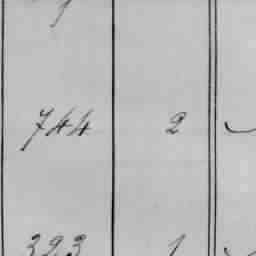 744 2
323 1